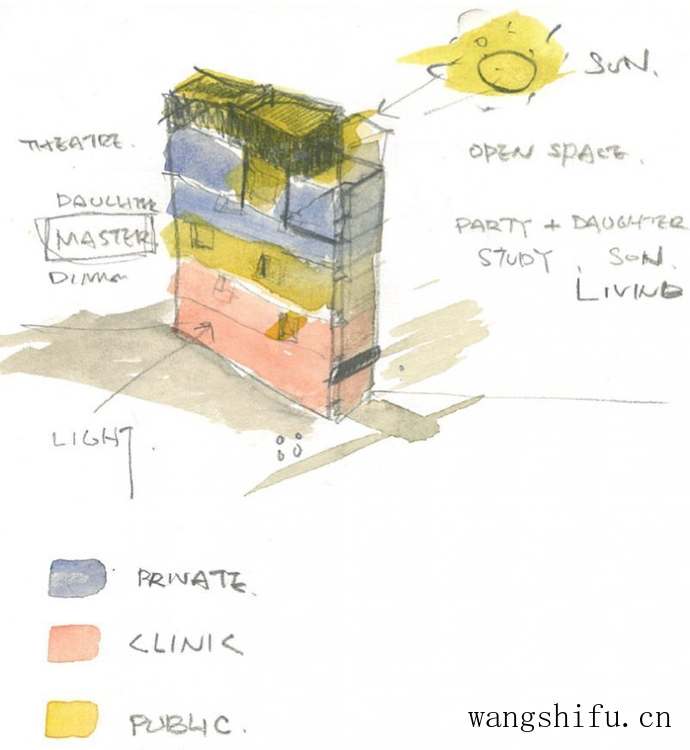 SUN.
THEATRE.
OPEN SPACE.
DAUGHTER
MASTER
PARTY + DAUGHTER
STUDY, SON.
LIVING
LIGHT.
PRIVATE.
CLINIC
PUBLIC.
wangshifu.cn